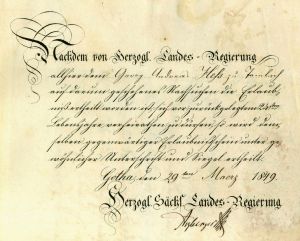 Nachdem von Herzogl. Landes-Regierung
allhier dem Georg Andreas Heß zu Tambach
auf darum geschehenes Nachsuchen die Erlaub-
niß ertheilt worden ist, sich vor zurückgelegtem 24sten
Lebensjahre verheirathen zu dürfen, so wird dem-
selben gegenwärtiger Erlaubnißschein unter ge-
wöhnlicher Unterschrift und Siegel ertheilt.
Gotha, den 29ten Maerz 1849.
Herzogl. Sächs. Landes-Regierung